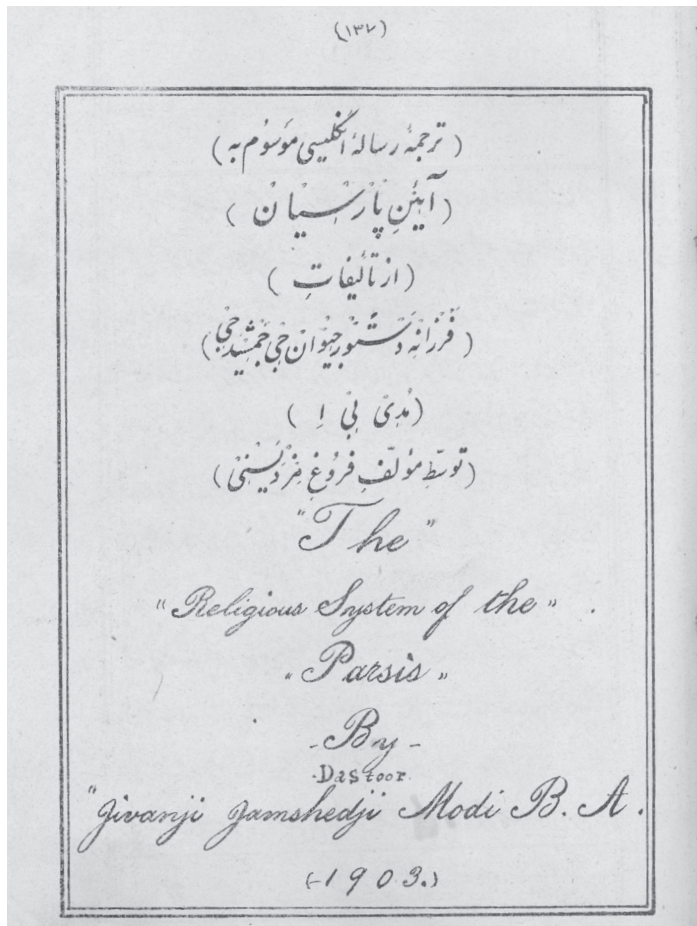 (۱۳۷)
(ترجمۀ رسالۀ انگلیسی موسوم به)
(آیینِ پارسیان)
(از تألیفاتِ)
(فَرزانَه دَستُور جیوان جی جَمشید جی)
(مُدی بی اِ)
(توسّطِ مؤلّفِ فروغِ مَزدَیَسنی)
"The"
"Religious System of the" .
"Parsis"
-By-
-Dastoor.
"Jivanji Jamshedji Modi B. A.
(-1903.)